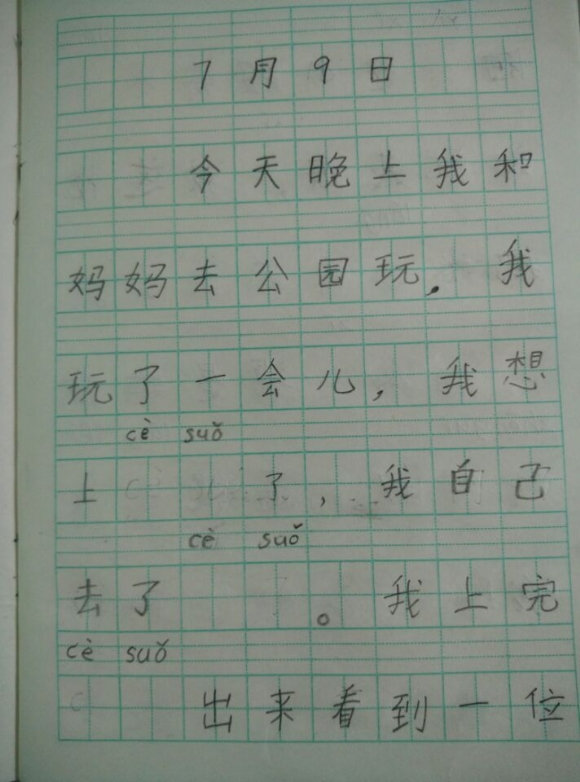 7月9日
今天晚上我和
妈妈去公园玩。我
玩了一会儿，我想
cè suǒ
上 了，我自己
cè suǒ
去了 。我上完
cè suǒ
出来看到一位